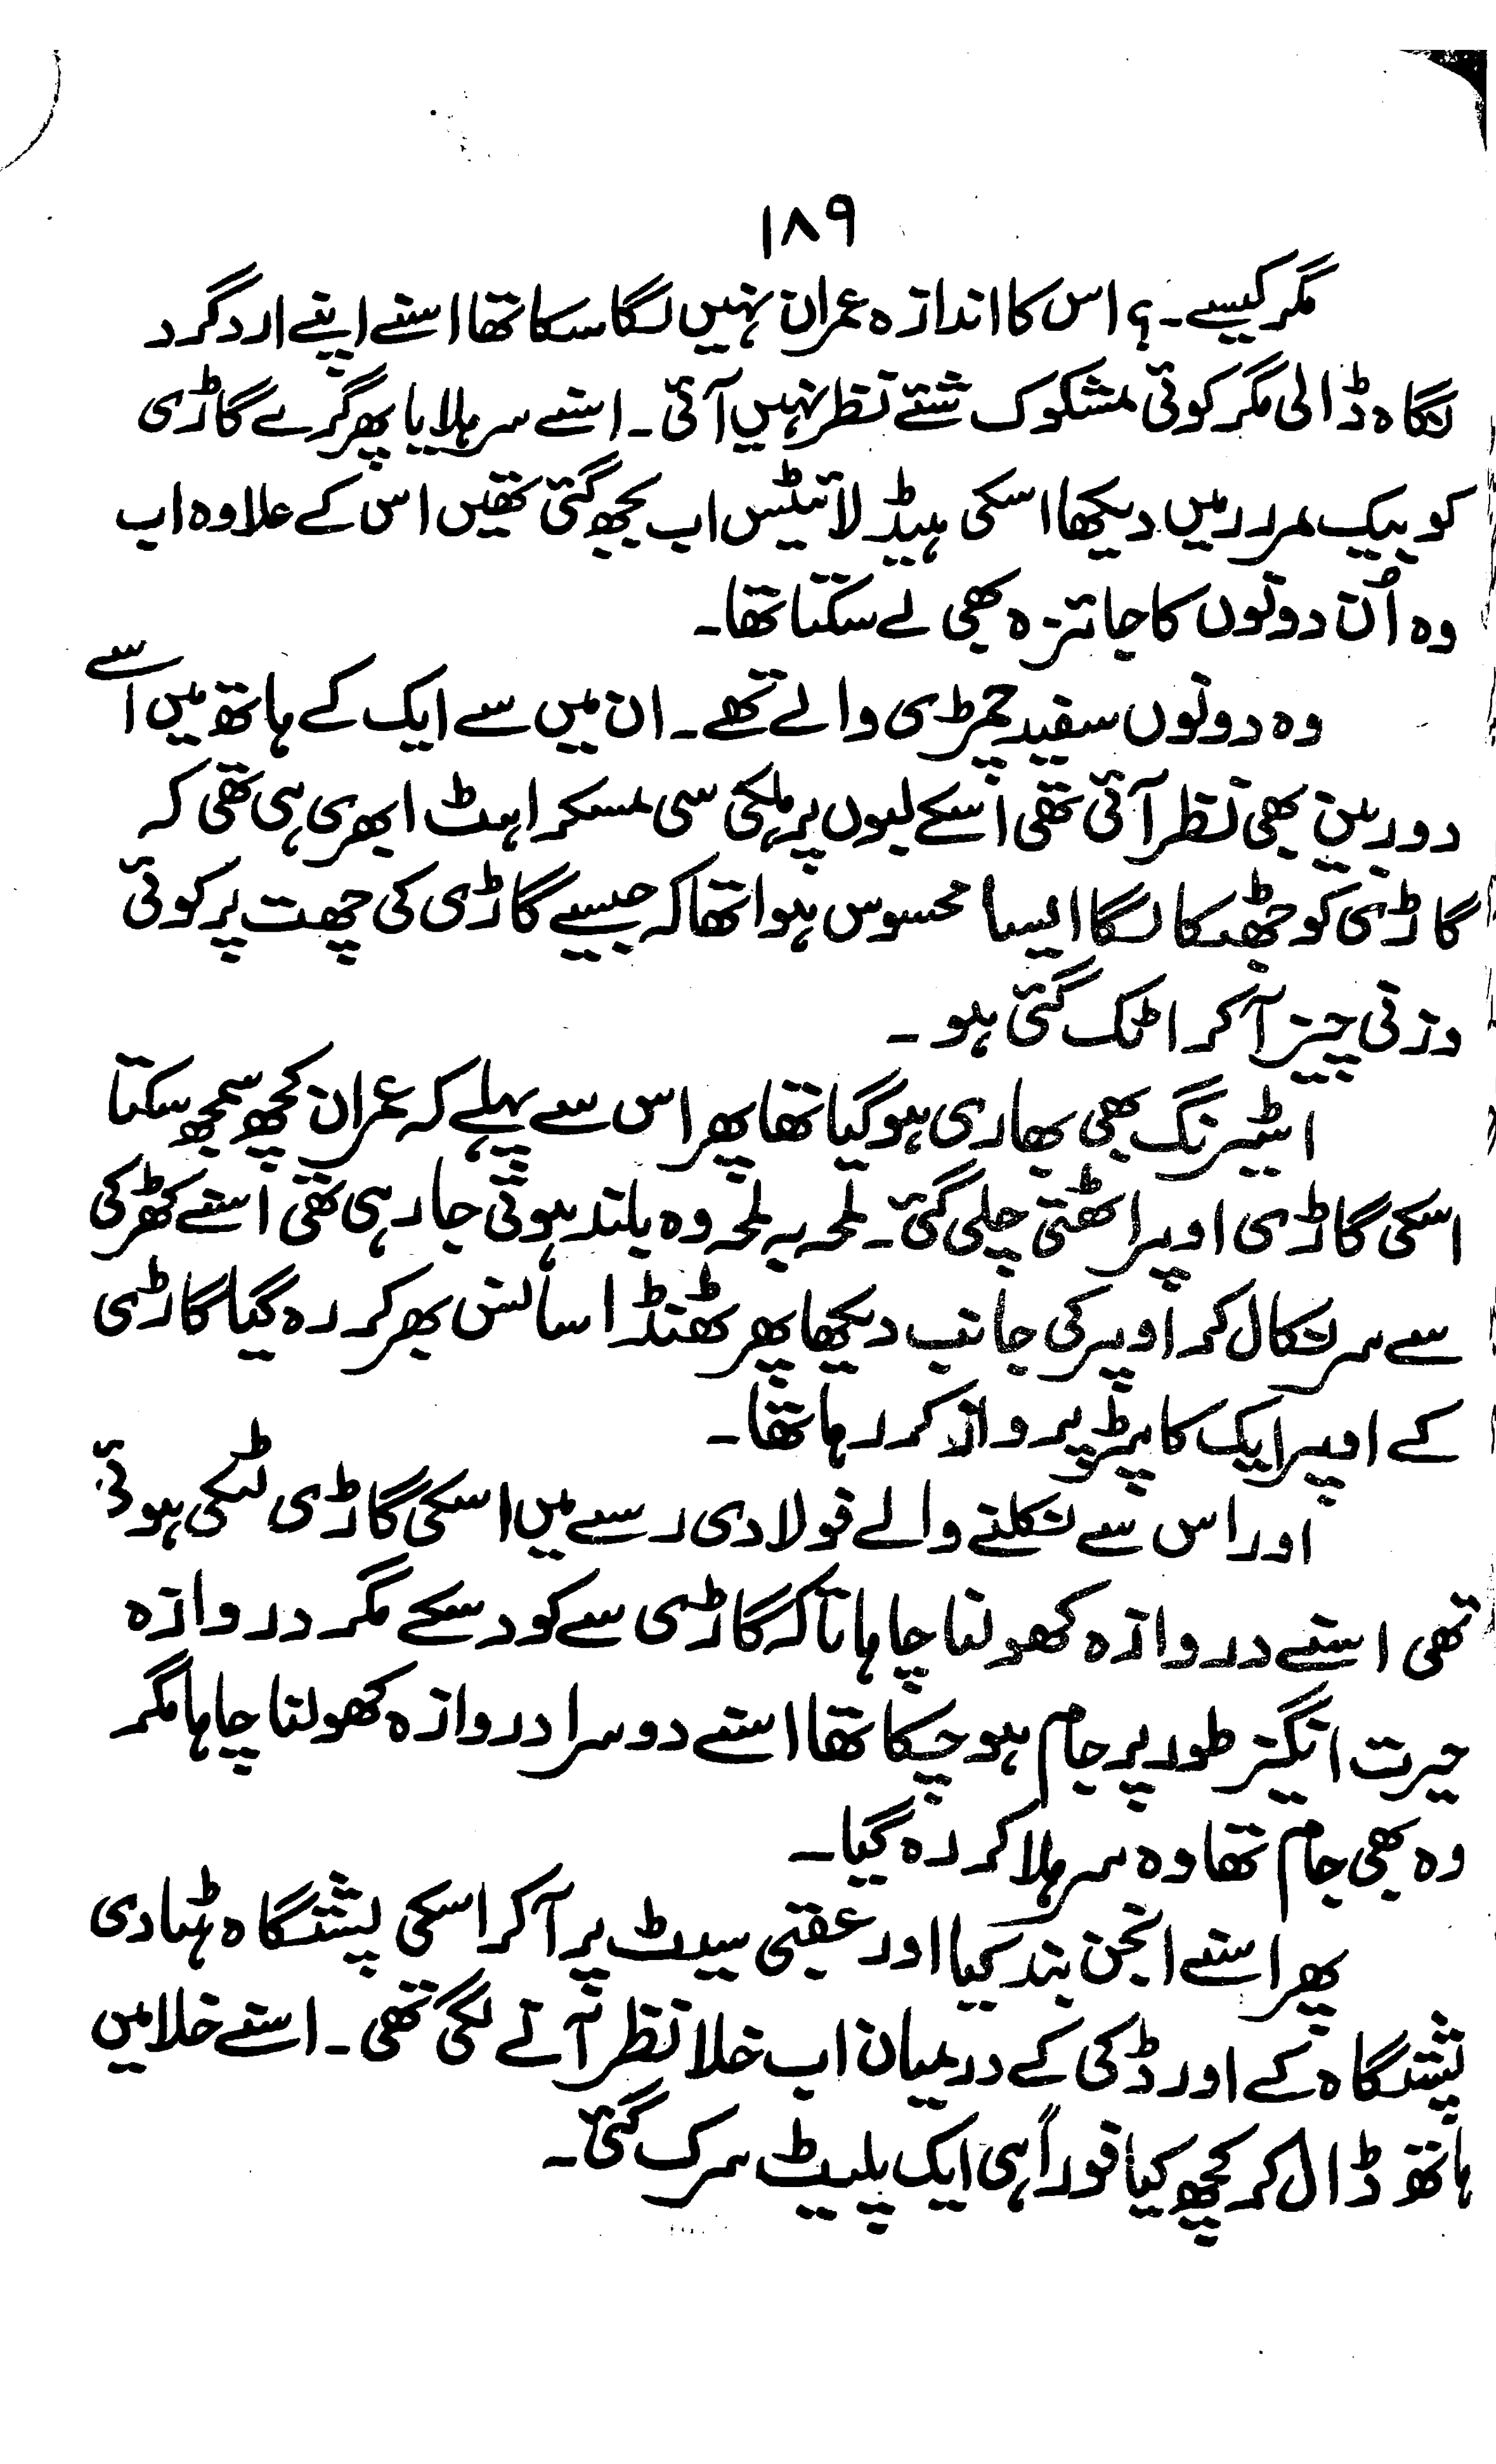 ۱۸۹
مگر کیسے۔؟ اس کا اندازہ عمران نہیں لگا سکا تھا اسنے اپنے ارد گرد
نگاہ ڈالی مگر کوئی مشکوک شئے نظر نہیں آئی۔ اسنے سر ہلایا پھر گرے گاڑی
کو بیک مرر میں دیکھا اسکی ہیڈ لائیٹس اب بجھ گئی تھیں اس کے علاوہ اب
وہ اُن دونوں کا جائزہ بھی لے سکتا تھا۔
وہ دونوں سفید چمڑی والے تھے۔ ان میں سے ایک کے ہاتھ میں اسے
دوربین بھی نظر آئی تھی اسکے لبوں پر ہلکی سی مسکراہٹ ابھری ہی تھی کہ
گاڑی کو جھٹکا لگا ایسا محسوس ہوا تھا کہ جیسے گاڑی کی چھت پر کوئی
وزنی چیز آکر اٹک گئی ہو۔
اسٹیرنگ بھی بھاری ہو گیا تھا پھر اس سے پہلے کہ عمران کچھ سمجھ سکتا
اسکی گاڑی اوپر اٹھتی چلی گئی۔ لمحہ بہ لمحہ وہ بلند ہوتی جا رہی تھی اسنے کھڑکی
سے سر نکال کر اوپر کی جانب دیکھا پھر ٹھنڈا سانس بھر کر رہ گیا گاڑی
کے اوپر ایک کاپٹر پرواز کر رہا تھا۔
اور اس سے نکلنے والے فولادی رسے میں اسکی گاڑی لٹکی ہوئی
تھی اسنے دروازہ کھولنا چاہا تاکہ گاڑی سے کود سکے مگر دروازہ
حیرت انگیز طور پر جام ہو چکا تھا اسنے دوسرا دروازہ کھولنا چاہا مگر
وہ بھی جام تھا وہ سر ہلا کر رہ گیا۔
پھر اسنے انجن بند کیا اور عقبی سیٹ پر آکر اسکی پشتگاہ ہٹا دی
پشتگاہ کے اور ڈکی کے درمیان اب خلا نظر آنے لگی تھی۔ اسنے خلا میں
ہاتھ ڈال کر کچھ کیا فوراً ہی ایک پلیٹ سرک گئی۔